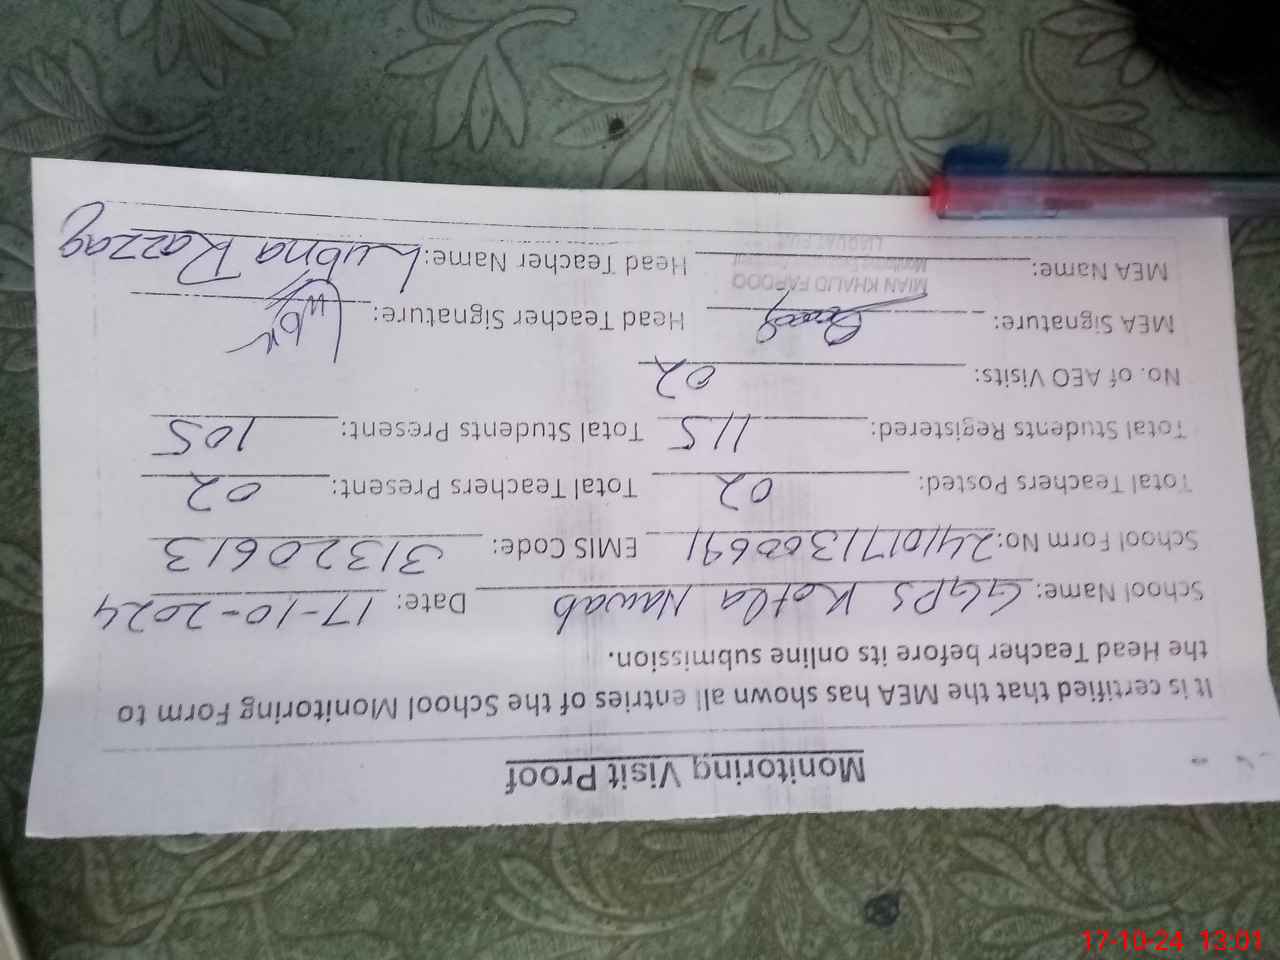 Monitoring Visit Proof
It is certified that the MEA has shown all entries of the School Monitoring Form to
the Head Teacher before its online submission.
School Name: GGPS Kotla Nawab Date: 17-10-2024
School Form No: 2410171300691 EMIS Code: 31320613
Total Teachers Posted: 02 Total Teachers Present: 02
Total Students Registered: 115 Total Students Present: 105
No. of AEO Visits: 02
MEA Signature: Head Teacher Signature:
MIAN KHALID FAROOQ
MEA Name: Head Teacher Name: Lubna Razzaq
LIAQUAT PUR
17-10-24 13:01